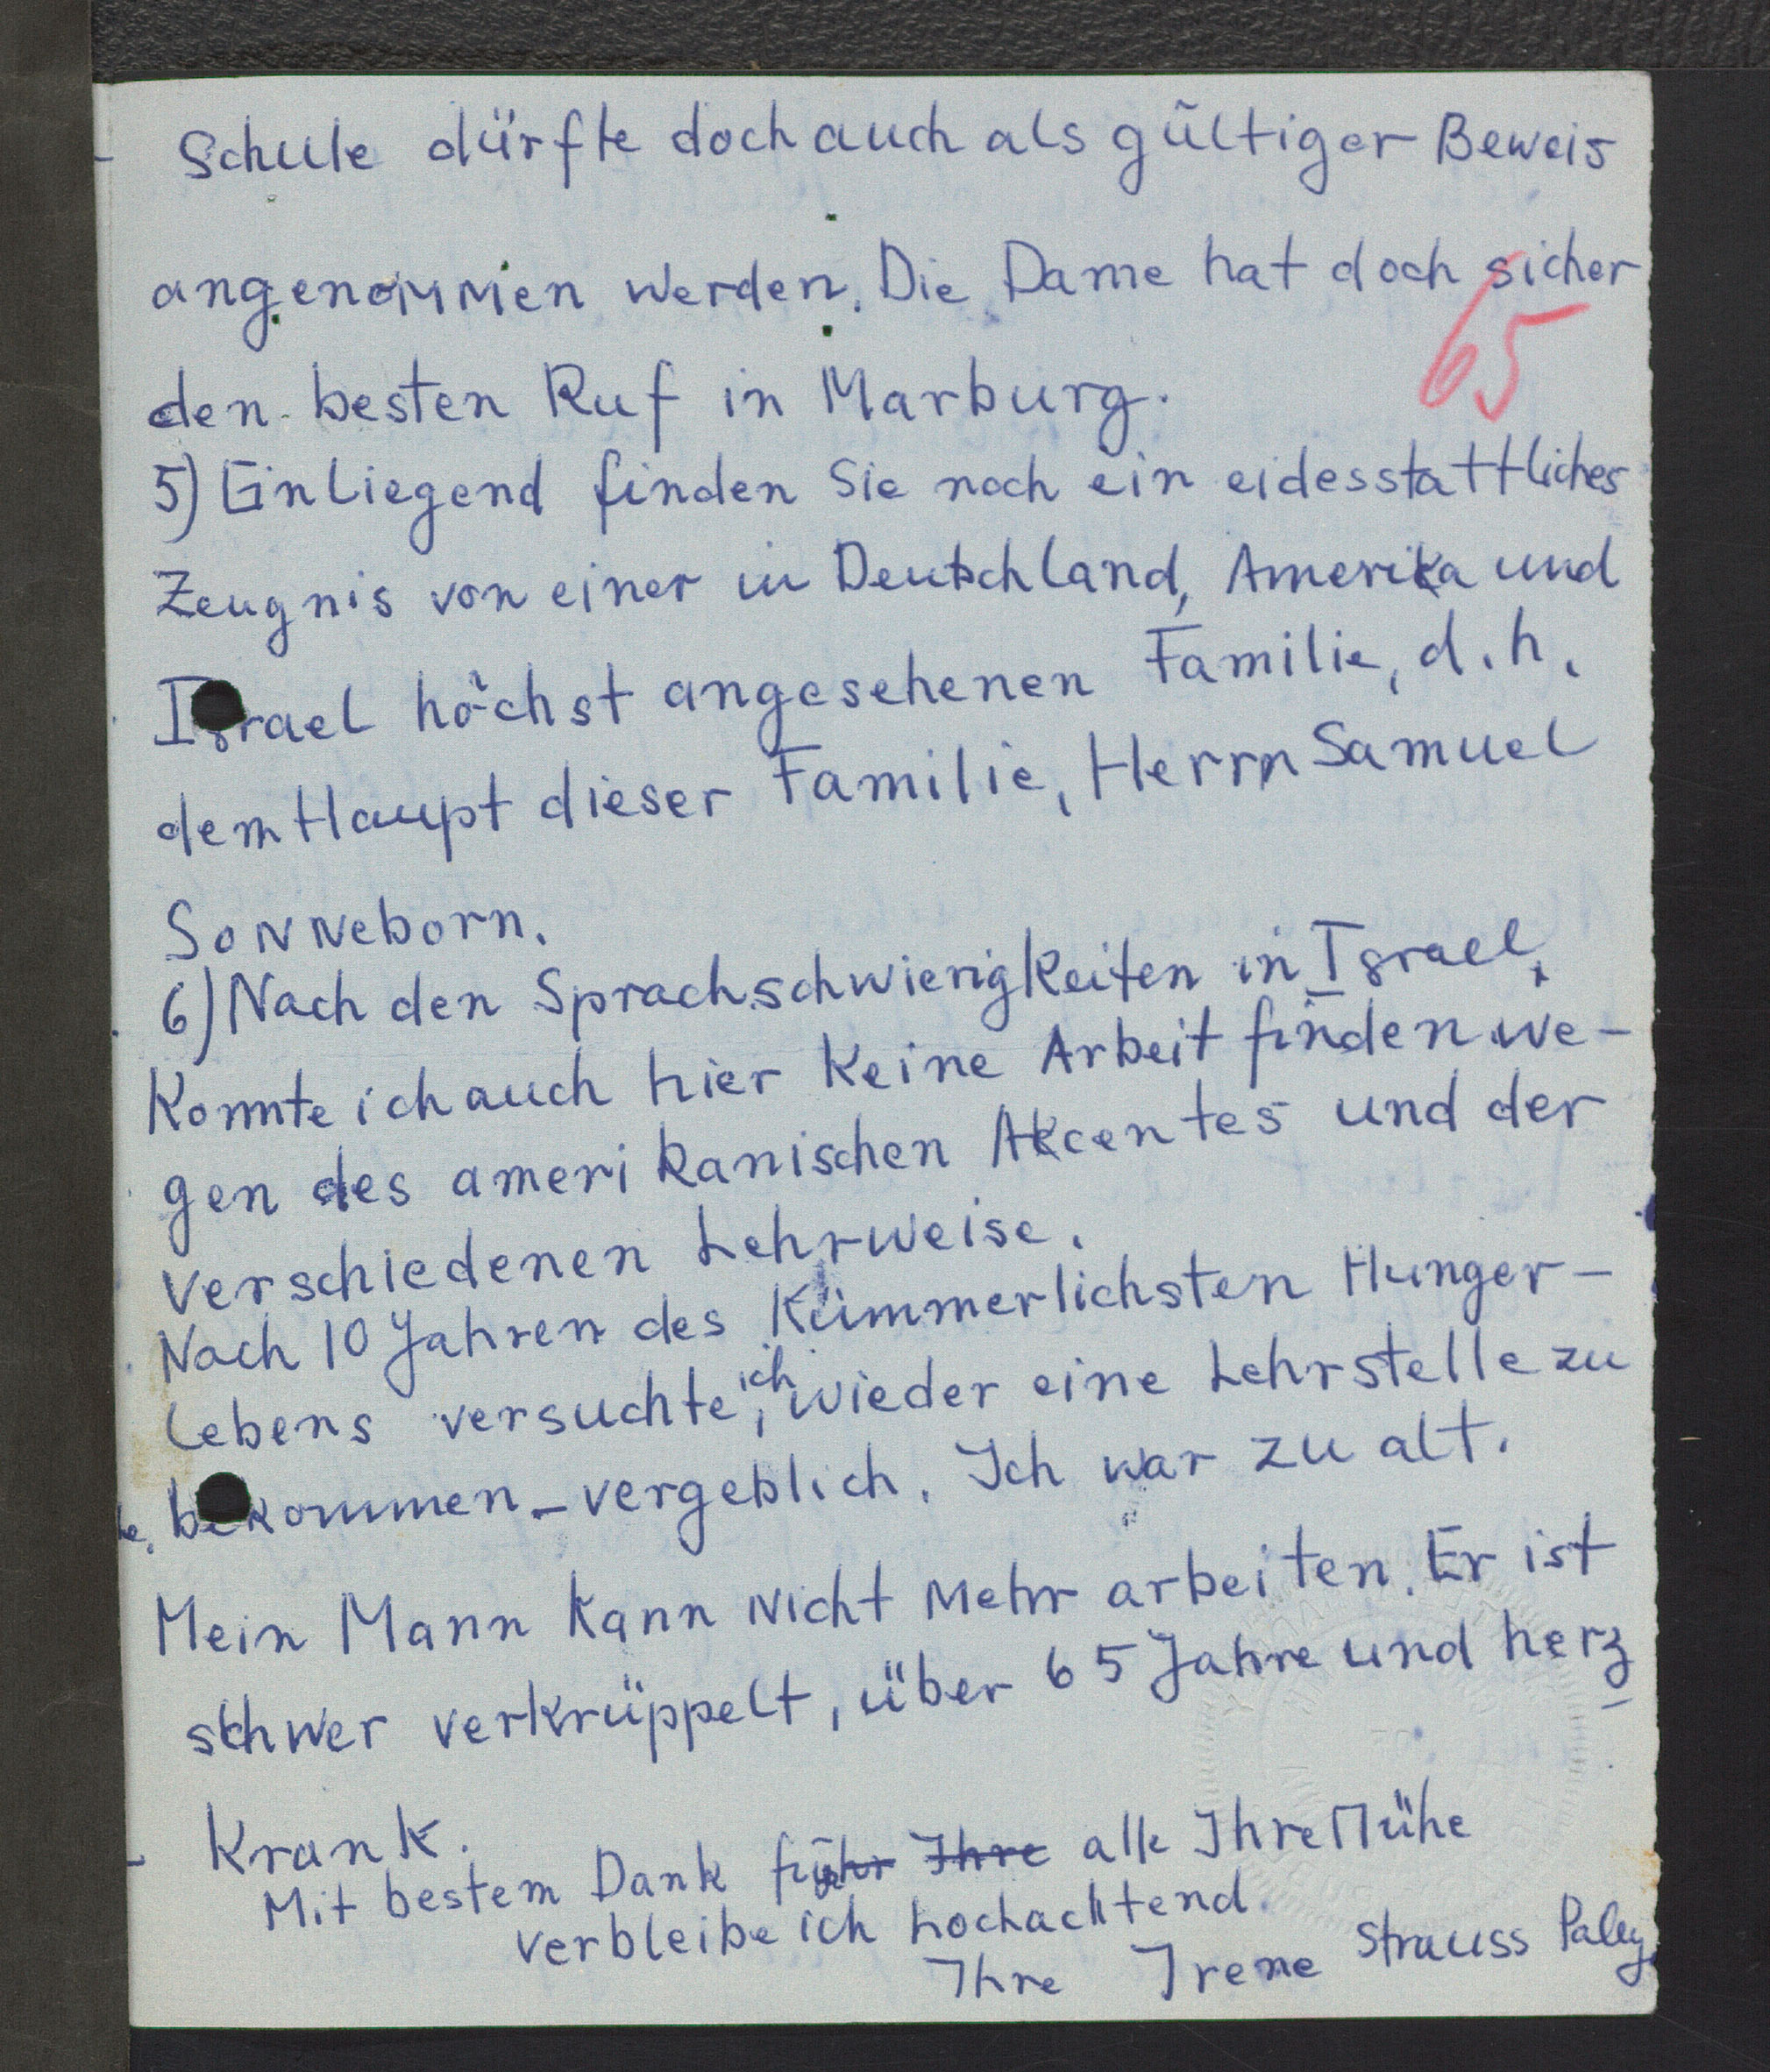 Schule dürfte doch auch als gültiger Beweis
angenommen werden. Die Dame hat doch sicher
65
den besten Ruf in Marburg.
5) Einliegend finden Sie noch ein eidesstattliches
Zeugnis von einer in Deutschland, Amerika und
Israel höchst angesehenen Familie, d.h.
dem Haupt dieser Familie, Herrn Samuel
Sonneborn.
6) Nach den Sprachschwierigkeiten in Israel,
konnte ich auch hier keine Arbeit finden we-
gen des amerikanischen Akcentes und der
verschiedenen Lehrweise.
Nach 10 Jahren des kümmerlichsten Hunger-
lebens versuchte ich, wieder eine Lehrstelle zu
bekommen – vergeblich. Ich war zu alt.
Mein Mann kann nicht mehr arbeiten. Er ist
schwer verkrüppelt, über 65 Jahre und herz
krank.
Mit bestem Dank für Ihre alle Ihre Mühe
verbleibe ich hochachtend
Ihre Irene Strauss Paley